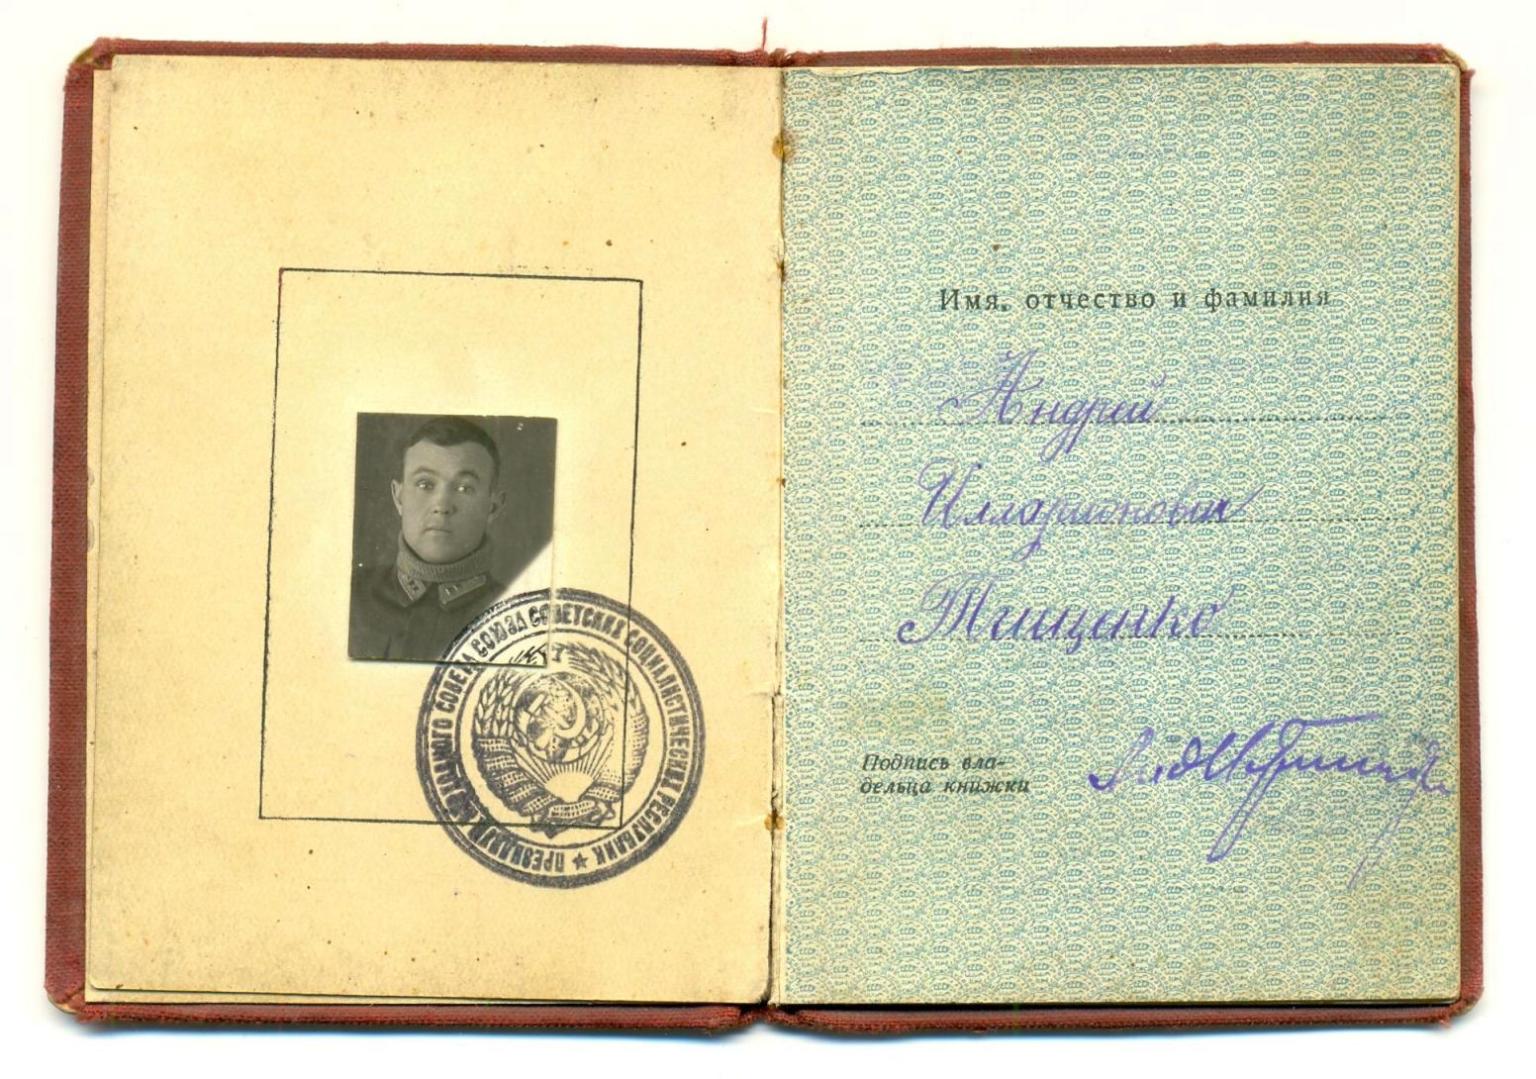 ПРЕЗИДИУМ ВЕРХОВНОГО СОВЕТА СОЮЗА СОВЕТСКИХ СОЦИАЛИСТИЧЕСКИХ РЕСПУБЛИК
Имя, отчество и фамилия
Андрей
Илларионович
Тищенко
Подпись вла-
дельца книжки